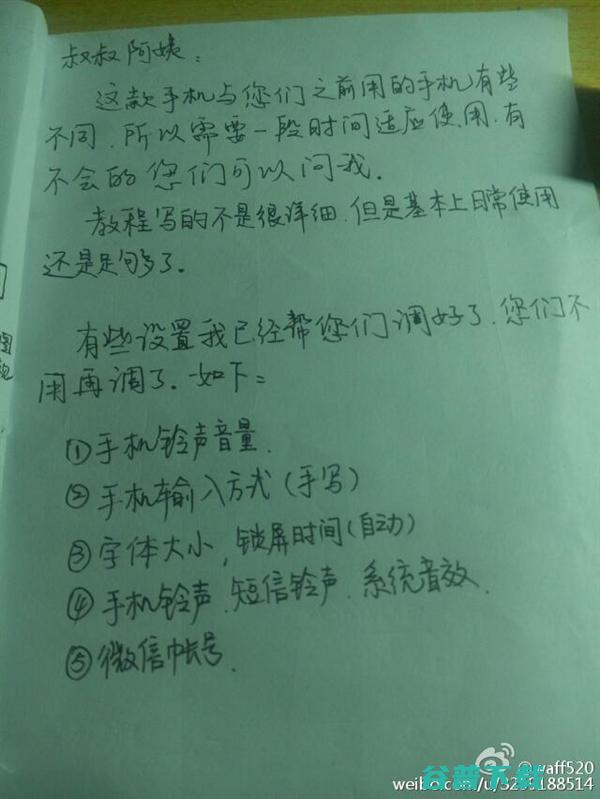 叔叔阿姨：
这款手机与您们之前用的手机有些
不同．所以需要一段时间适应使用．有
不会的您们可以问我．
教程写的不是很详细．但是基本上日常使用
还是足够了．
有些设置我已经帮您们调好了．您们不
用再调了．如下：
①手机铃声音量．
②手机输入方式（手写）
③字体大小，锁屏时间（自动）
④手机铃声．短信铃声．系统音效．
⑤微信帐号．
谷普下载
weibo.com/u/3299188514